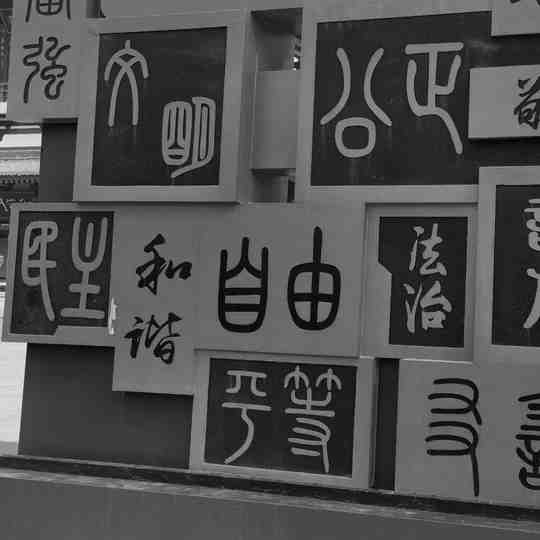 强
文明
公正
民主
和谐
自由
法治
平等
友